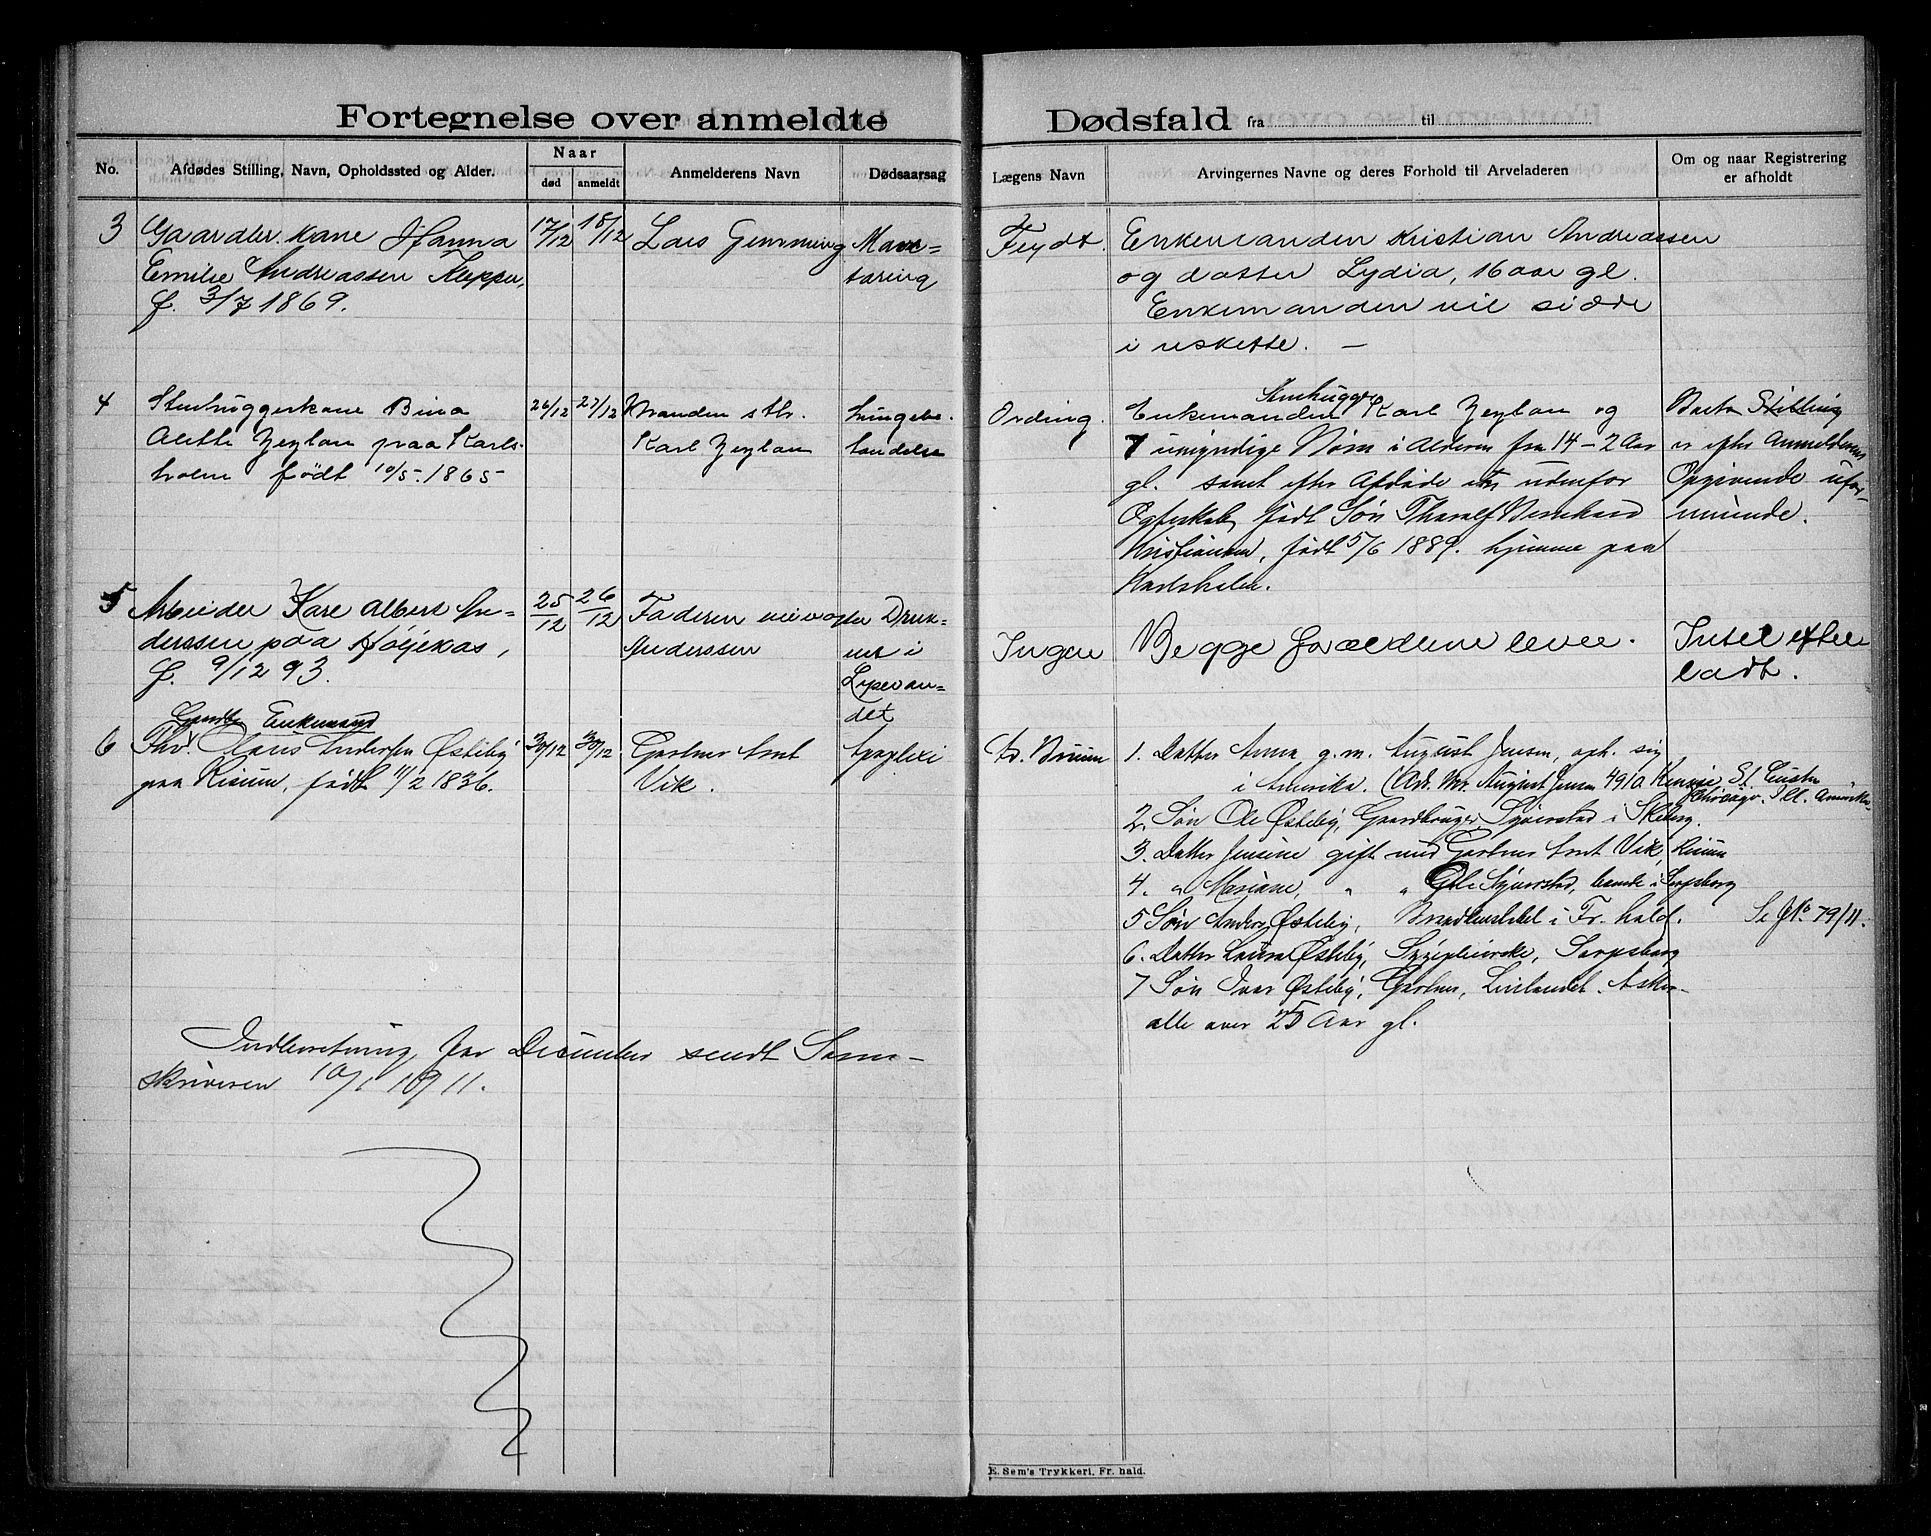 Fortegnelse over anmeldte Dødsfald fra til
No.
Afdødes Stilling, Navn, Opholdssted og Alder.
Naar
død
anmeldt
Anmelderens Navn
Dødsaarsag
Lægens Navn
Arvingernes Navne og deres Forhold til Arveladeren
Om og naar Registrering
er afholdt
3
Gaardbr. kone Hanna
Emilie Andreassen
f. 3/7 1869.
17/12
18/12
Lars Gjemming
Mave-
tæring
Feydt.
Enkemanden Kristian Andreassen
og datter Lydia, 16 aar gl.
Enkemanden vil sidde
i uskifte. —
4
Stenhuggerkone Bina
Alette Zeylon paa Karls-
holm født 10/5. 1865
26/12
27/12
Manden sthr.
Karl Zeylon
Lungebe-
tændelse
Ording.
Stenhugger
Enkemanden Karl Zeylon og
7 umyndige Børn i Alderen fra 14 - 2 Aar
gl. samt efter Afdøde et udenfor
Ægteskab født Søn Thoralf Bernhard
Kristiansen, født 5/6 1889. hjemme paa
Karlsholm.
Boets Stilling
er efter Anmelderens
Opgivende ufor-
muende.
5
Arbeider Karl Albert An-
derssen paa Høyekas,
f. 9/12 93.
25/12
26/12
Faderen
Anderssen
Druk-
net i
Lysevan-
det
Ingen
Begge forældrene lever.
Intet efter
ladt.
6
Gaardbr. Enkemand
Thv. Hans Andersen Østeby
paa Risum, født 11/2 1836.
30/12
30/12
Gartner Arnt
Vik.
Apoplexi
Dr. Bruun
1. Datter Anna, g. m. August Jensen, oph. sig
i Amerika. (Adr. Mr. August Jensen 4910 Kenzie St. Austin
Chicago. Ill. Amerika.
2. Søn Ole Østeby, Gaardbruger, Syverstad i Skeberg.
3. Datter Jensine gift med Gartner Arnt Vik, Risum
4. " Mariane, " " Ole Syverstad, boende i Sarpsborg
5 Søn Anders Østeby, Brandkonstabel i Fr. hald.
6. Datter Laura Østeby, Sygepleierske, Sarpsborg
7 Søn Ivar Østeby, Gartner, Asker-
alle over 25 Aar gl.
Se No 79/11.
Indberetning for December sendt Soren-
skriveren 10/1 1911.
E. Sem's Trykkeri, Fr. hald.